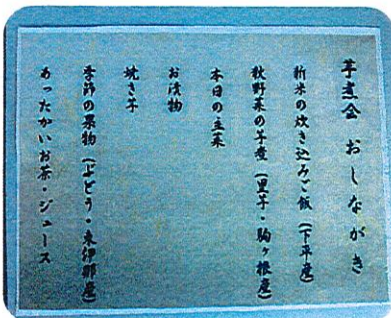 芋煮会 おしながき
新米の炊き込みご飯(下平産)
秋野菜の芋煮(里芋・駒ヶ根産)
本日の主菜
お漬物
焼き芋
季節の果物(ぶどう・東伊那産)
あったかいお茶・ジュース